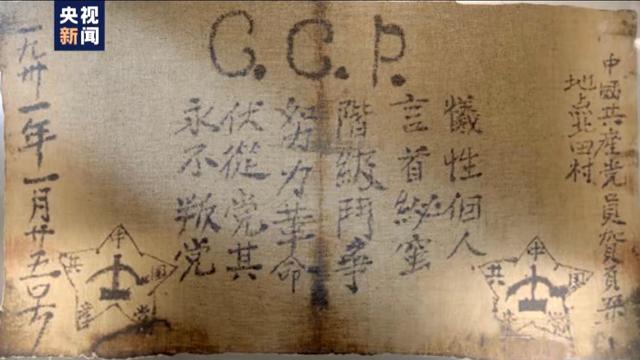 央视
新闻
C.C.P.
中國共產党員賀
地点北田村
犧牲個人
言首秘蜜
階級鬥爭
努力革命
伏從党其
永不叛党
一九卅一年一月廿五号
中國共產党
中國共產党